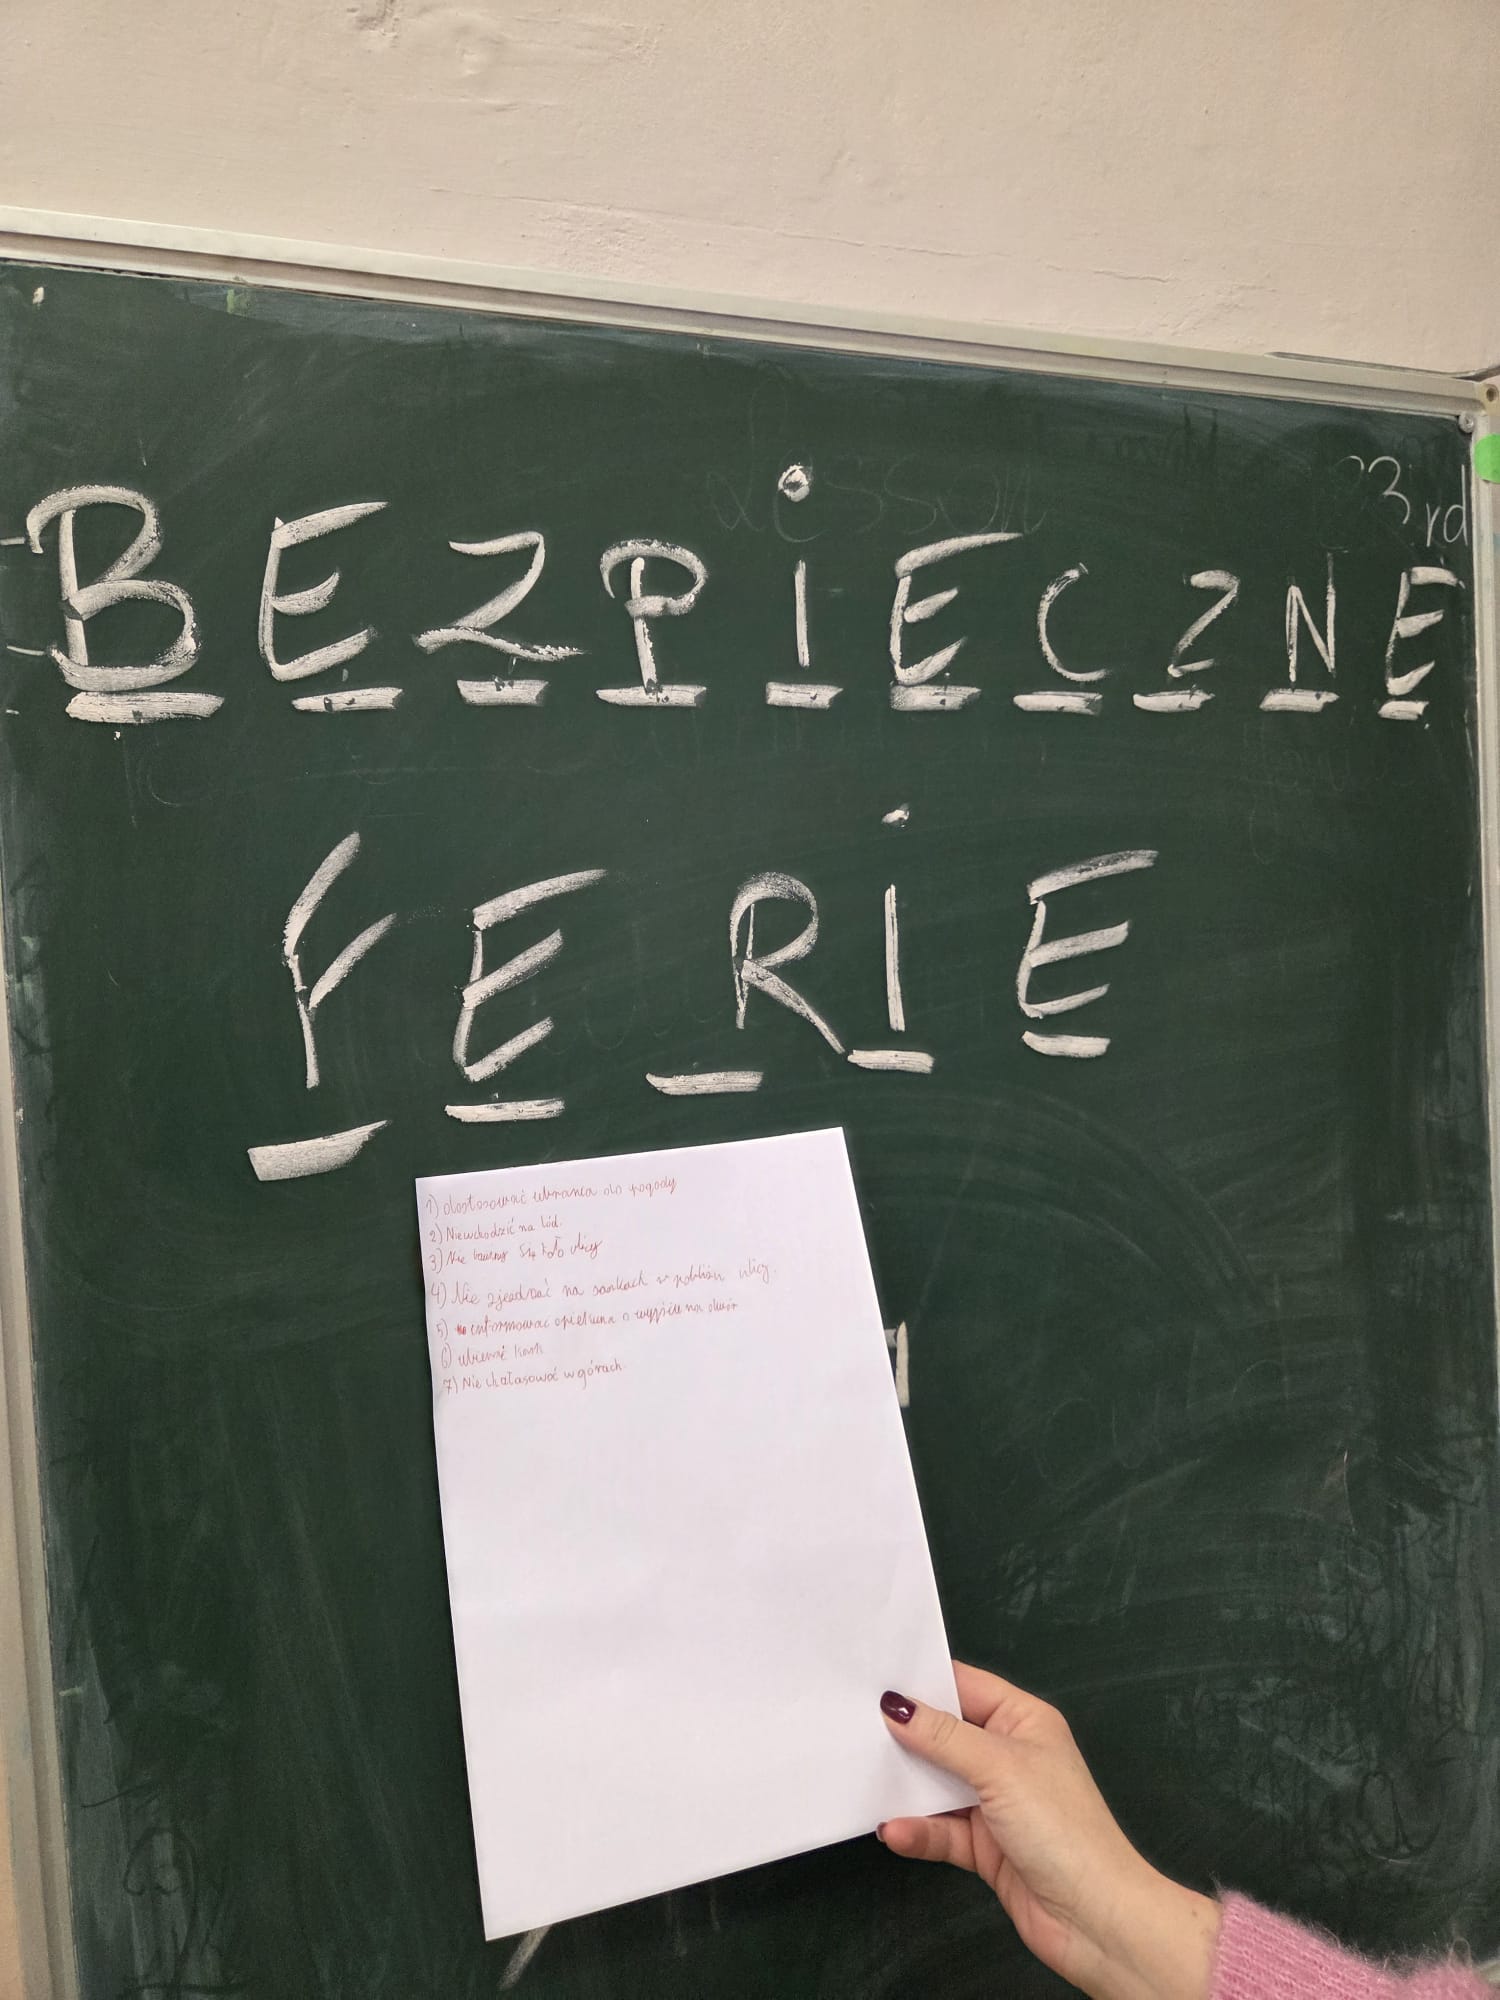 lesson
23rd
BEZPIECZNE
FERIE
1) dostosować ubranca do pogody
2) Niewchodzić na lód.
3) Nie bawimy się koło ulicy
4) Nie zjeżdżać na sankach w pobliżu ulicy.
5) informować opiekuna o wyjściu na dwór
6) ubierać kask
7) Nie chałasować w górach.